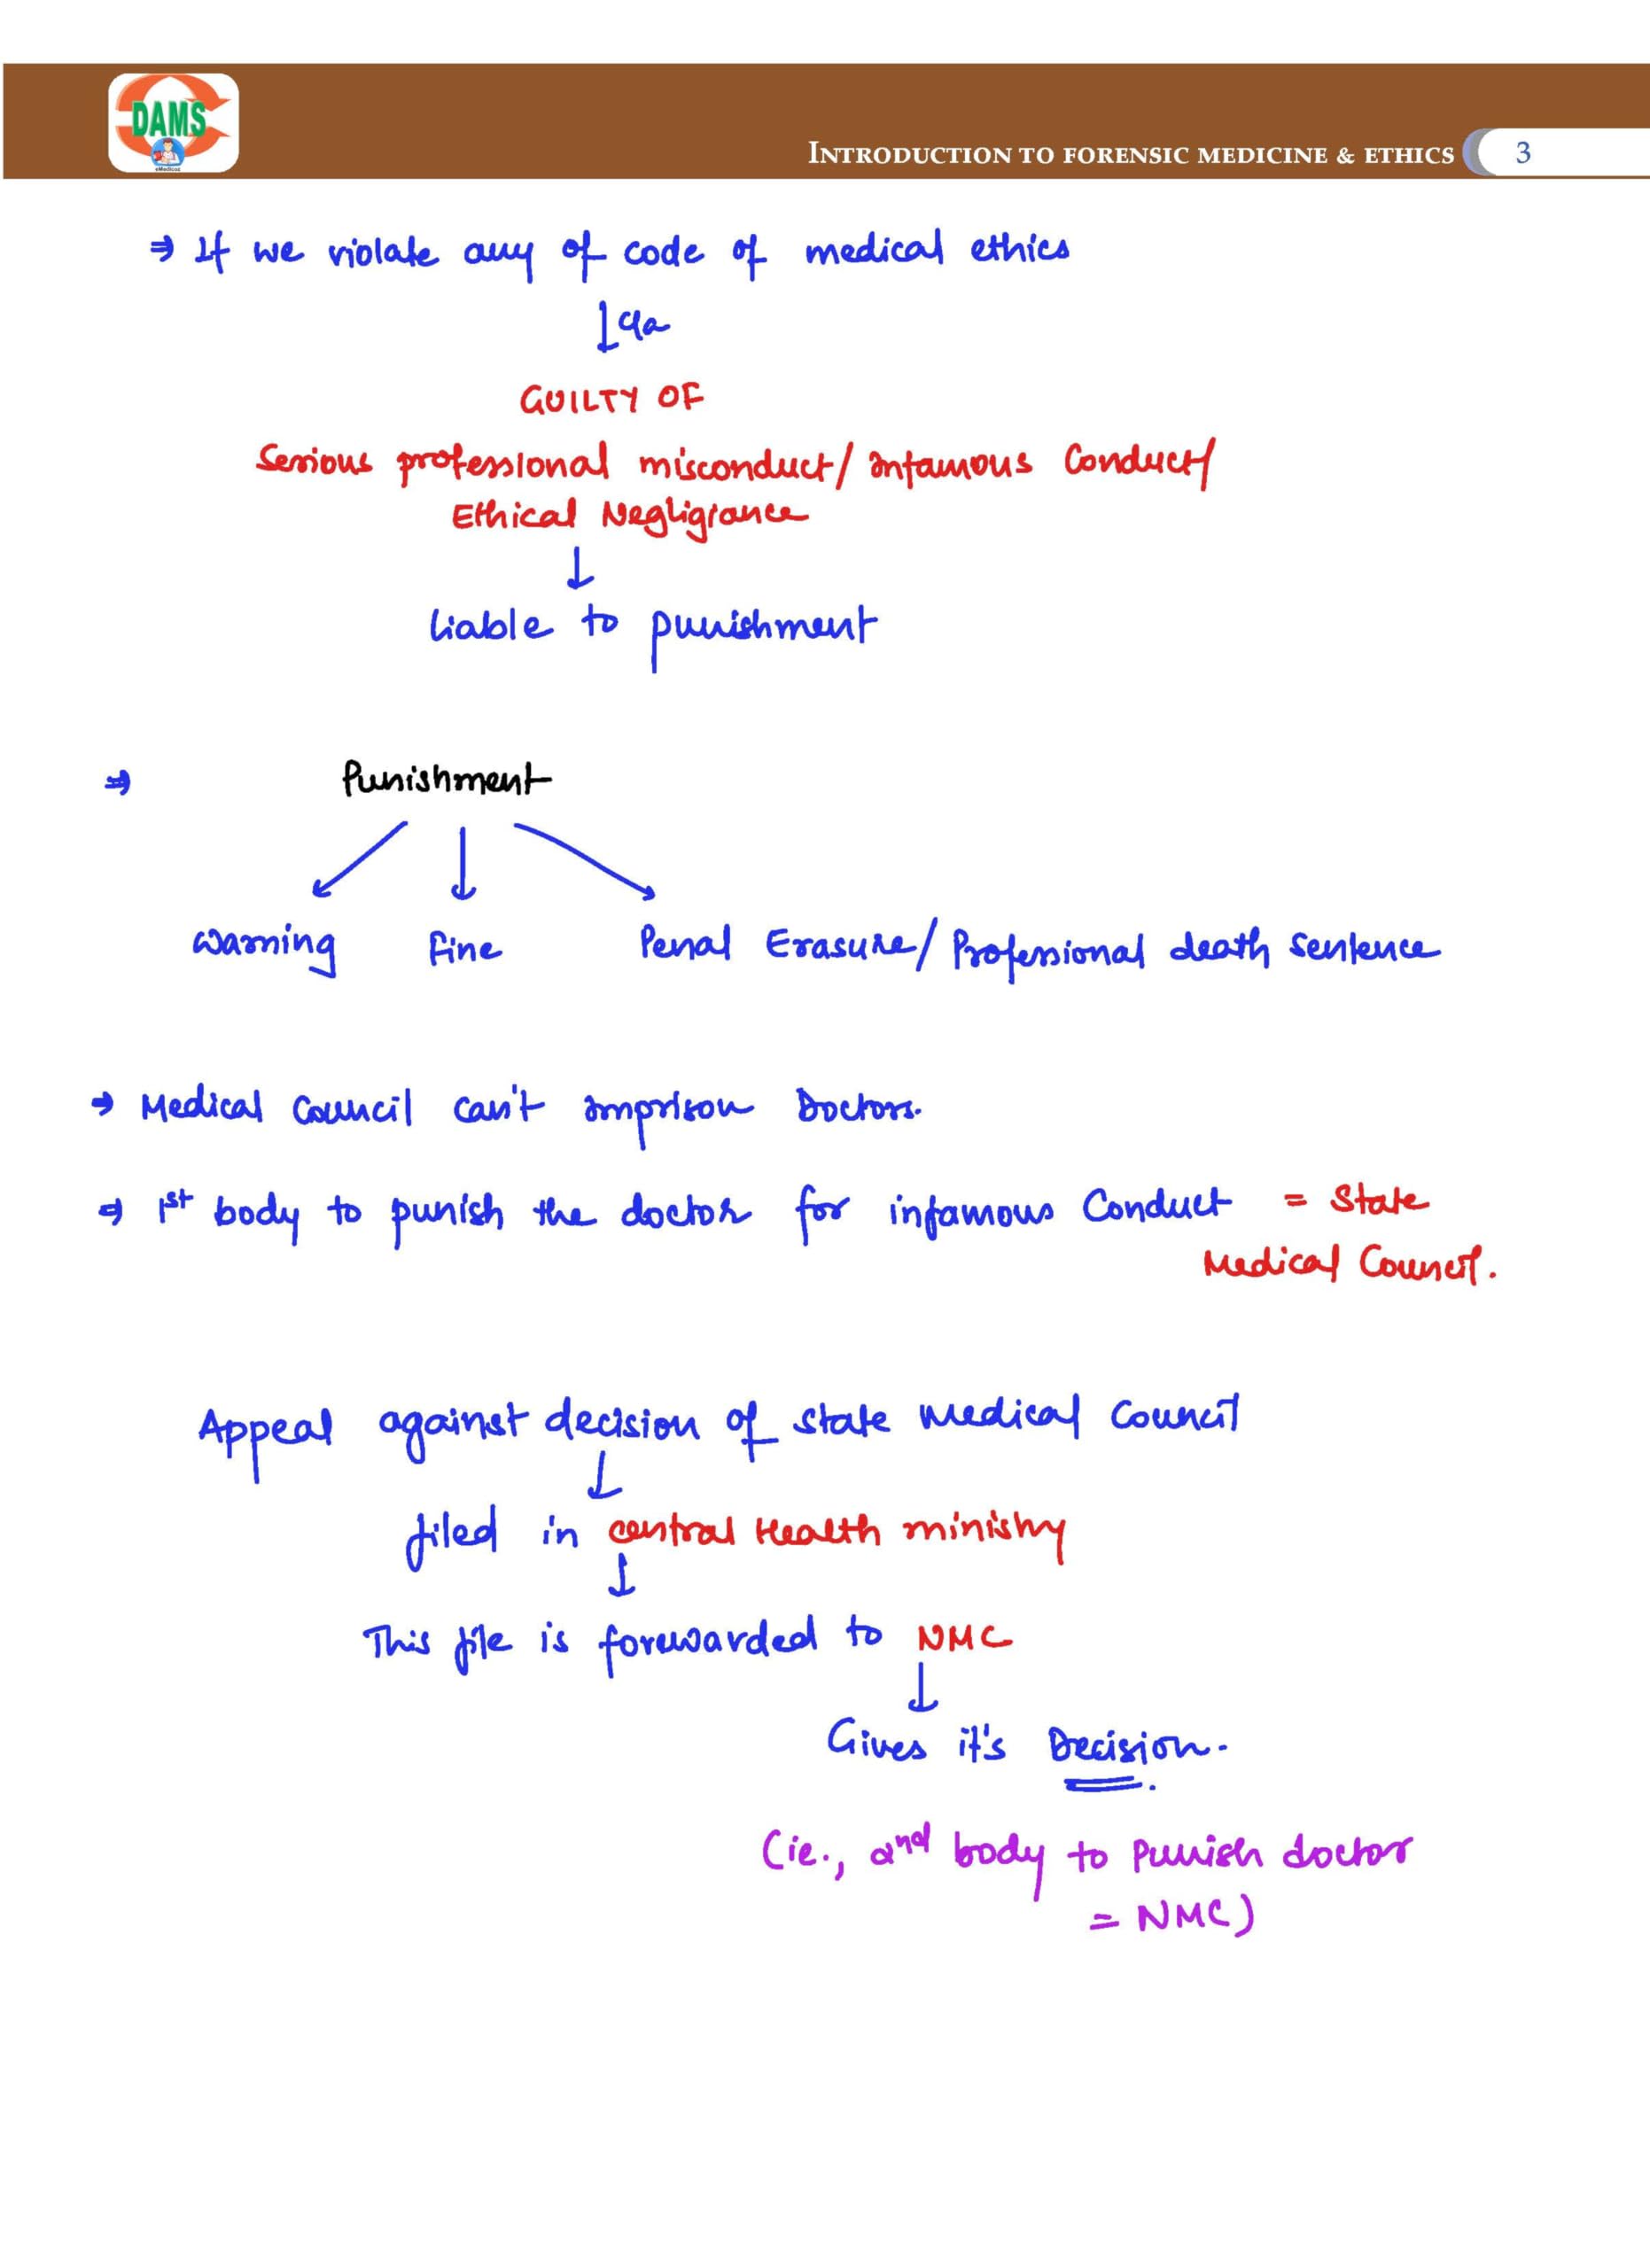 DAMS
eMedicoz
INTRODUCTION TO FORENSIC MEDICINE & ETHICS 3
⇒ If we violate any of code of medical ethics
GUILTY OF
Serious professional misconduct/ Infamous Conduct/
Ethical Negligrance
↓
liable to punishment
⇒ Punishment
Warning Fine Penal Erasure/ Professional death sentence
→ Medical Council can't imprison Doctors.
⇒ 1st body to punish the doctor for infamous Conduct = State
Medical Council.
Appeal against decision of state Medical Council
↓
filed in central Health ministry
↓
This file is forewarded to NMC
↓
Gives it's Decision.
(ie., 2nd body to Punish doctor
= NMC)